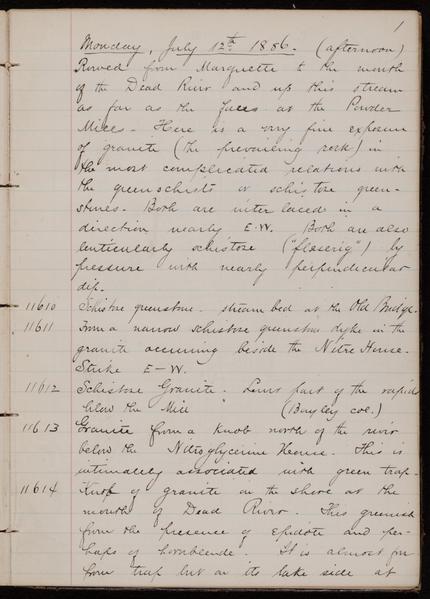 1
Monday, July 12th 1886. (afternoon)
Rowed from Marquette to the mouth
of the Dead River and up this stream
as far as the at the Powder
Mills. Here is a very fine exposure
of granite (the prevailing rock) in
the most complicated relations with
the greenschists or schistose green-
stones. Both are interlaced in a
direction nearly E.W. Both are also
lenticularly schistose ("flaserig") by
pressure with nearly perpendicular
dip.
11610 Schistose greenstone. stream bed at the Old Bridge.
11611 From a narrow schistose greenstone dyke in the
granite occurring beside the Nitro House.
Strike E-W.
11612 Schistose Granite. Lower part of the rapids
below the Mill (Bayley col.)
11613 Granite from a knob north of the river
below the Nitroglycerine House. This is
intimately associated with green trap
11614 Knob of granite on the shore at the
mouth of Dead River. This greenish
from the presence of epidote and per-
haps of hornblende. It is almost free
from trap but on its lake side at